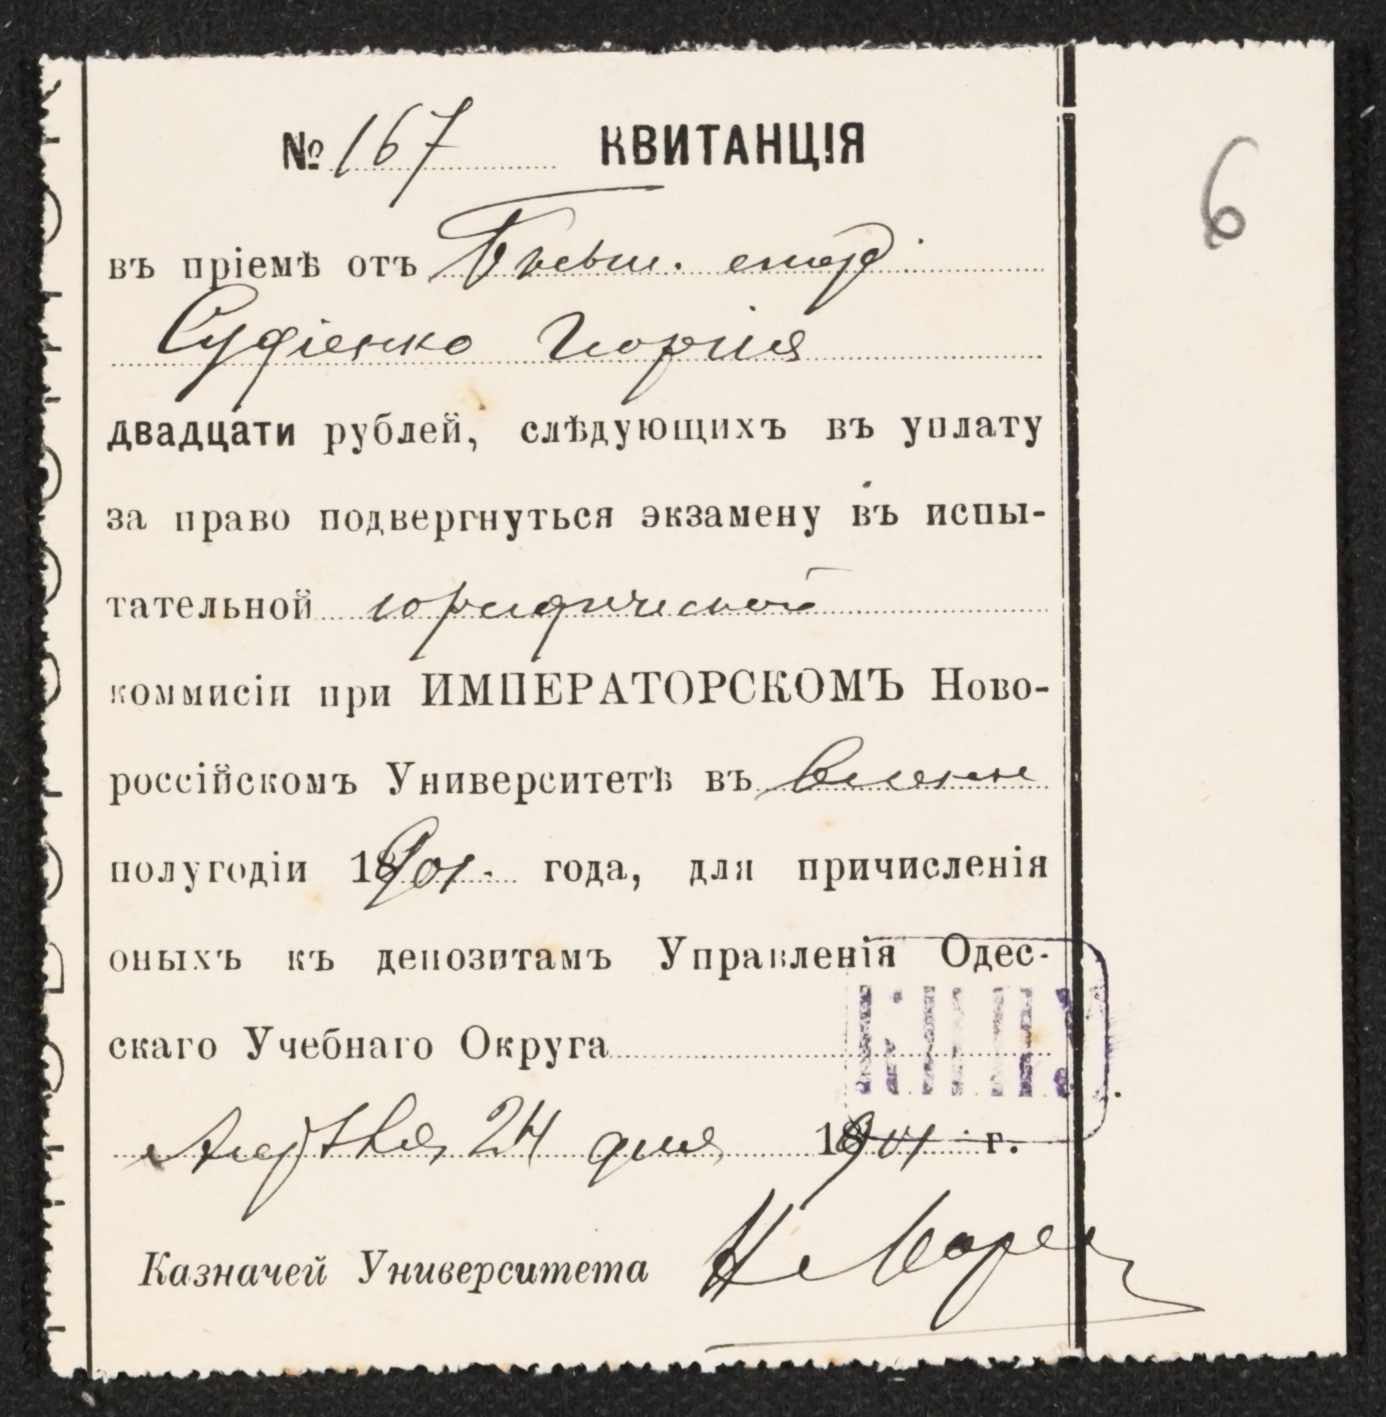 № 167 КВИТАНЦІЯ
6
въ пріемѣ отъ Бывш. студ.
Судіенко Георгія
двадцати рублей, слѣдующихъ въ уплату
за право подвергнуться экзамену въ испы-
тательной юридической
коммисіи при ИМПЕРАТОРСКОМЪ Ново-
россійскомъ Университетѣ въ
полугодіи 1901. года, для причисленія
оныхъ къ депозитамъ Управленія Одес-
скаго Учебнаго Округа
Августа 24 дня 1901 г.
Казначей Университета